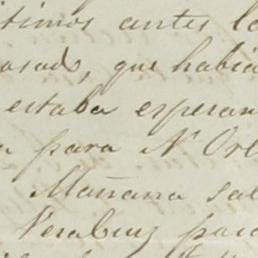 timos antes la
asado, que habia
estaba esperan
a para N. Orl
Mañana sal
Verabuz para